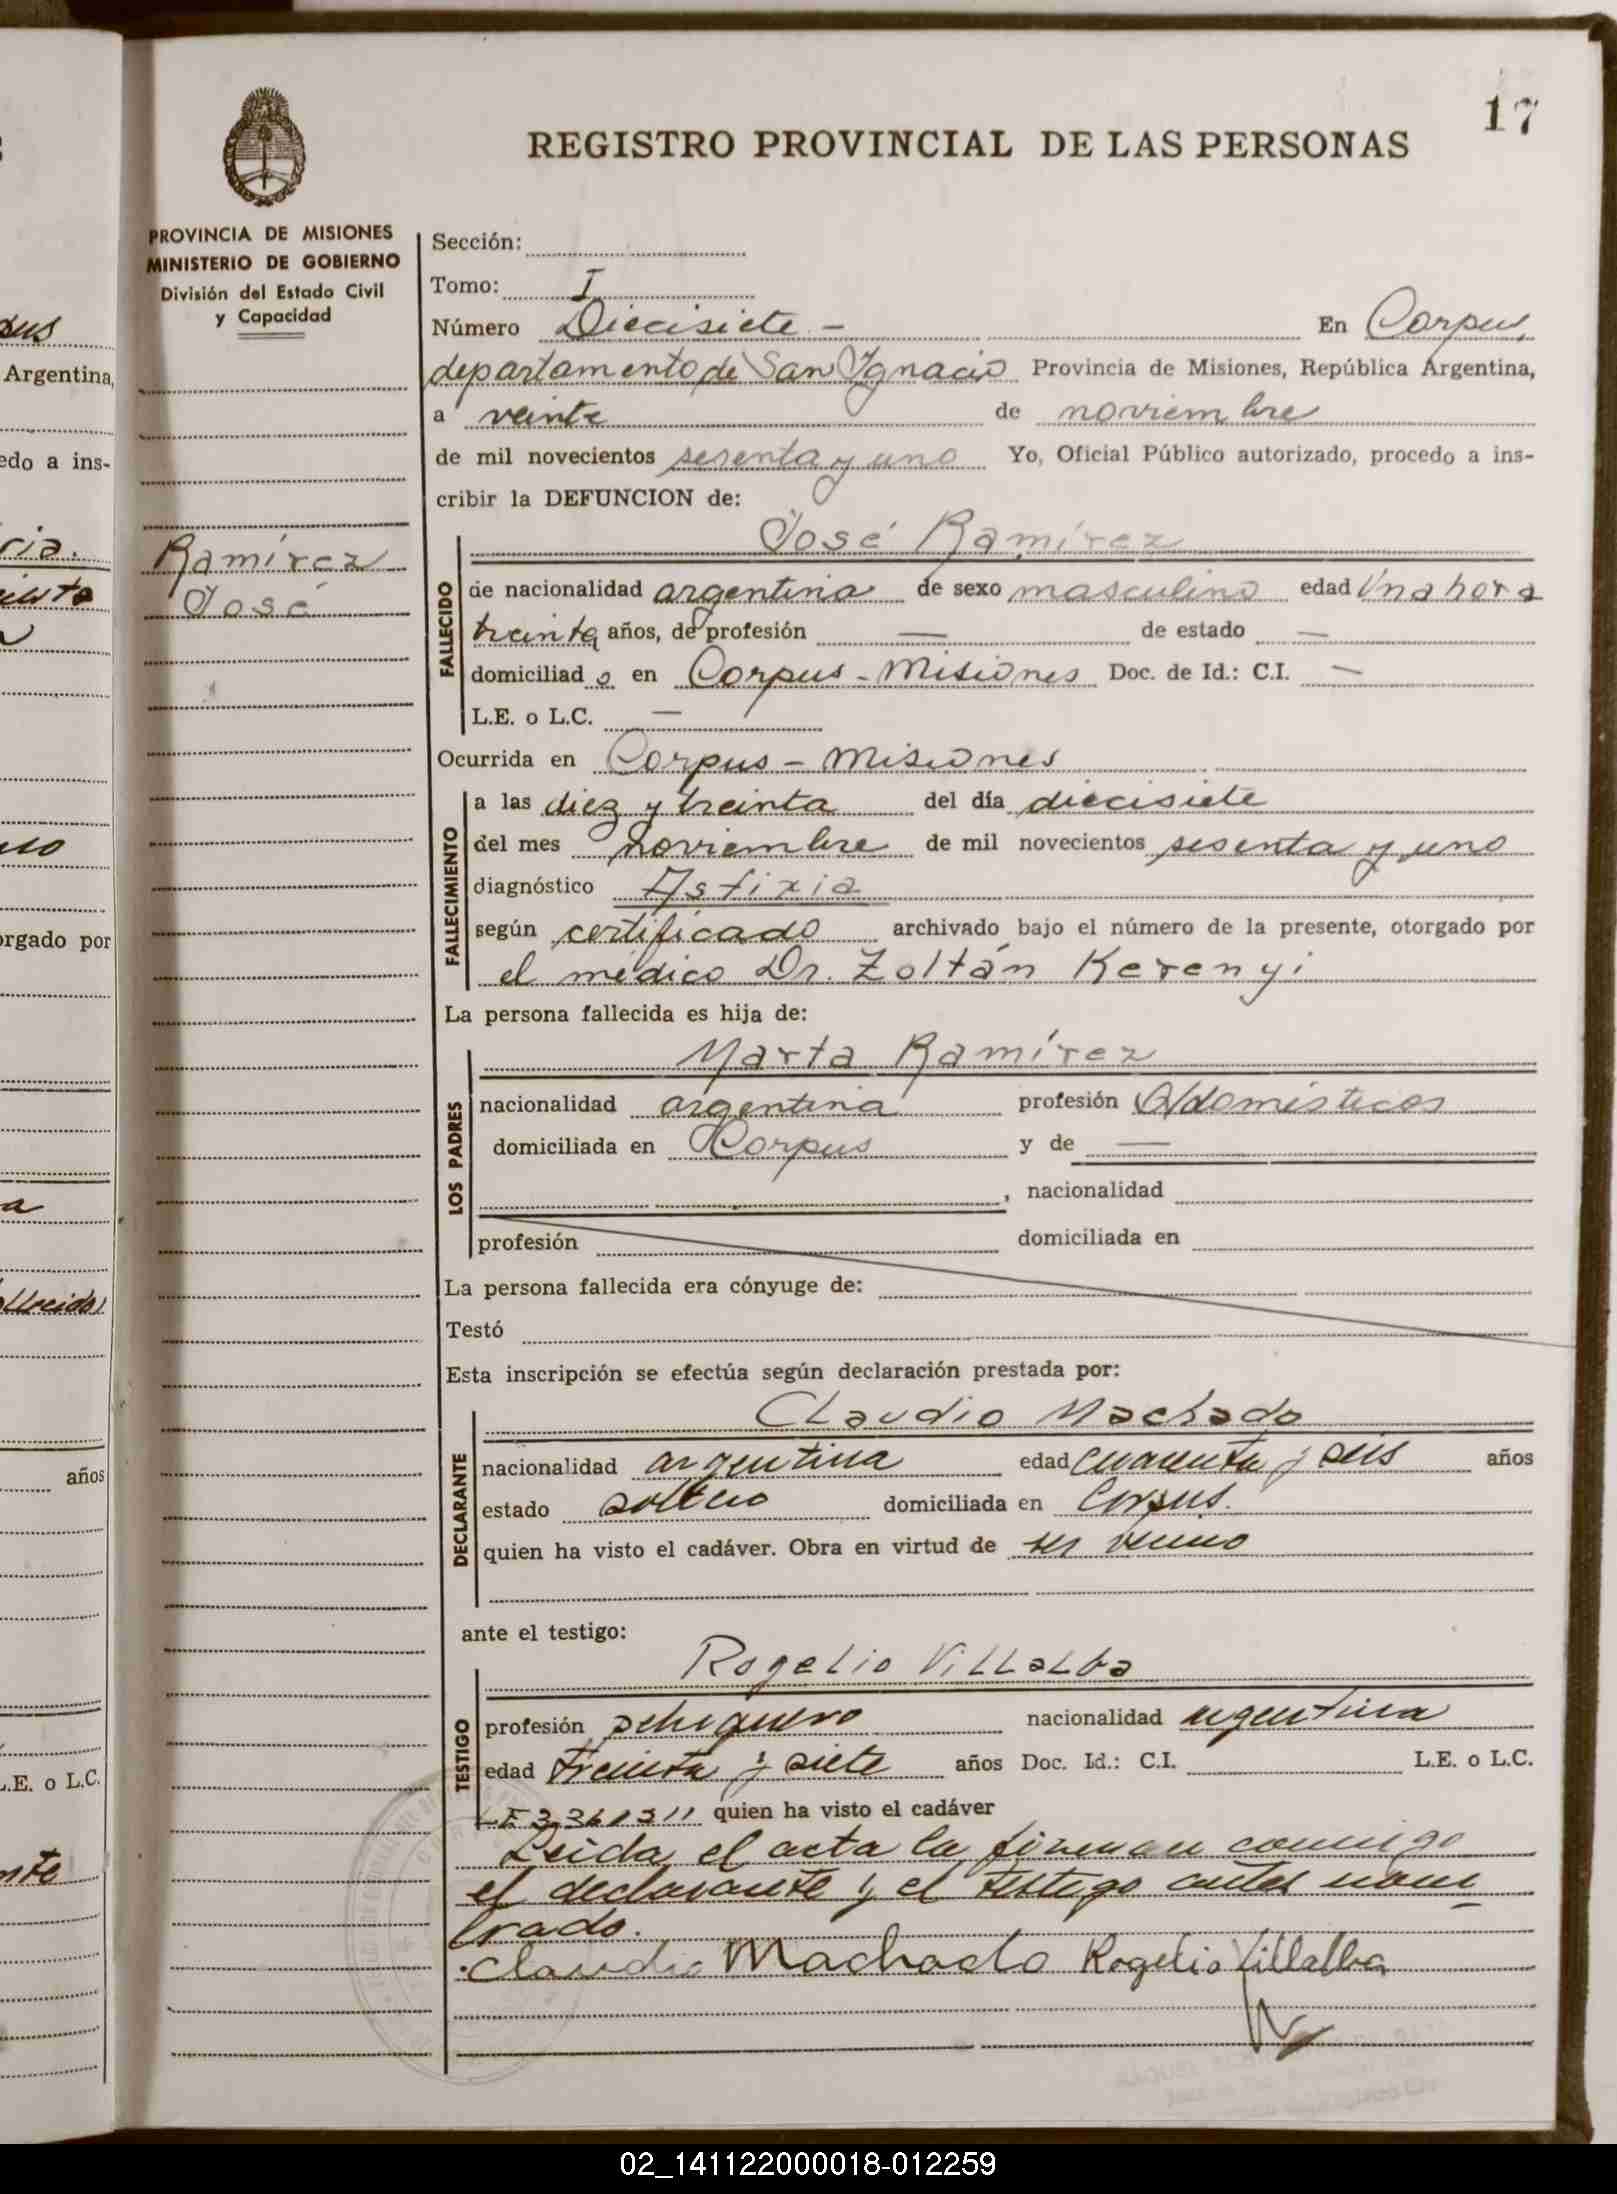 17
REGISTRO PROVINCIAL DE LAS PERSONAS
PROVINCIA DE MISIONES
MINISTERIO DE GOBIERNO
División del Estado Civil
y Capacidad
Ramírez
José
Sección:
Tomo: I
Número Diecisiete - En Corpus,
departamento de San Ygnacio Provincia de Misiones, República Argentina,
a veinte de noviembre
de mil novecientos sesenta y uno Yo, Oficial Público autorizado, procedo a ins-
cribir la DEFUNCION de:
José Ramírez
FALLECIDO
de nacionalidad argentina de sexo masculino edad Una hora
treinta años, de profesión — de estado —
domiciliad o en Corpus - Misiones Doc. de Id.: C.I. —
L.E. o L.C. —
Ocurrida en Corpus - Misiones
FALLECIMIENTO
a las diez y treinta del día diecisiete
del mes noviembre de mil novecientos sesenta y uno
diagnóstico Asfixia
según certificado archivado bajo el número de la presente, otorgado por
el médico Dr. Zoltán Kerenyi
La persona fallecida es hija de:
LOS PADRES
Marta Ramírez
nacionalidad argentina profesión Q/domésticos
domiciliada en Corpus y de —
, nacionalidad
profesión domiciliada en
La persona fallecida era cónyuge de:
Testó
Esta inscripción se efectúa según declaración prestada por:
DECLARANTE
Claudio Machado
nacionalidad argentina edad cuarenta y seis años
estado soltero domiciliada en Corpus.
quien ha visto el cadáver. Obra en virtud de ser vecino
ante el testigo:
TESTIGO
Rogelio Villalba
profesión nacionalidad argentina
edad treinta y siete años Doc. Id.: C.I. L.E. o L.C.
LE quien ha visto el cadáver
Leída el acta la firman conmigo
el declarante y el testigo antes nom
brado.
Claudio Machado Rogelio Villalba
02_141122000018-012259